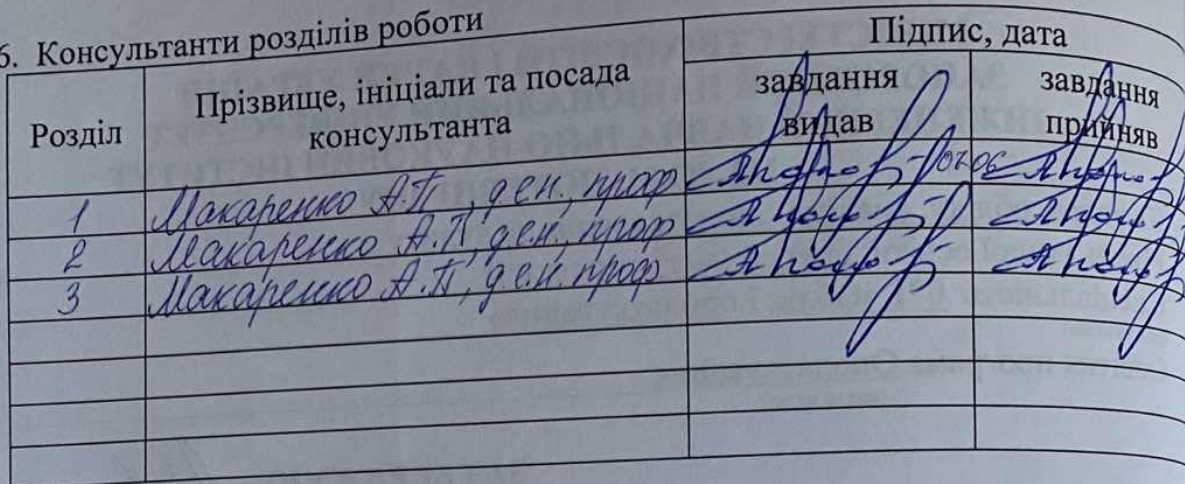 6. Консультанти розділів роботи
Розділ
Прізвище, ініціали та посада
консультанта
Підпис, дата
завдання
видав
завдання
прийняв
1 Макаренко А.П., д.е.н., проф
2 Макаренко А.П., д.е.н., проф
3 Макаренко А.П., д.е.н. проф